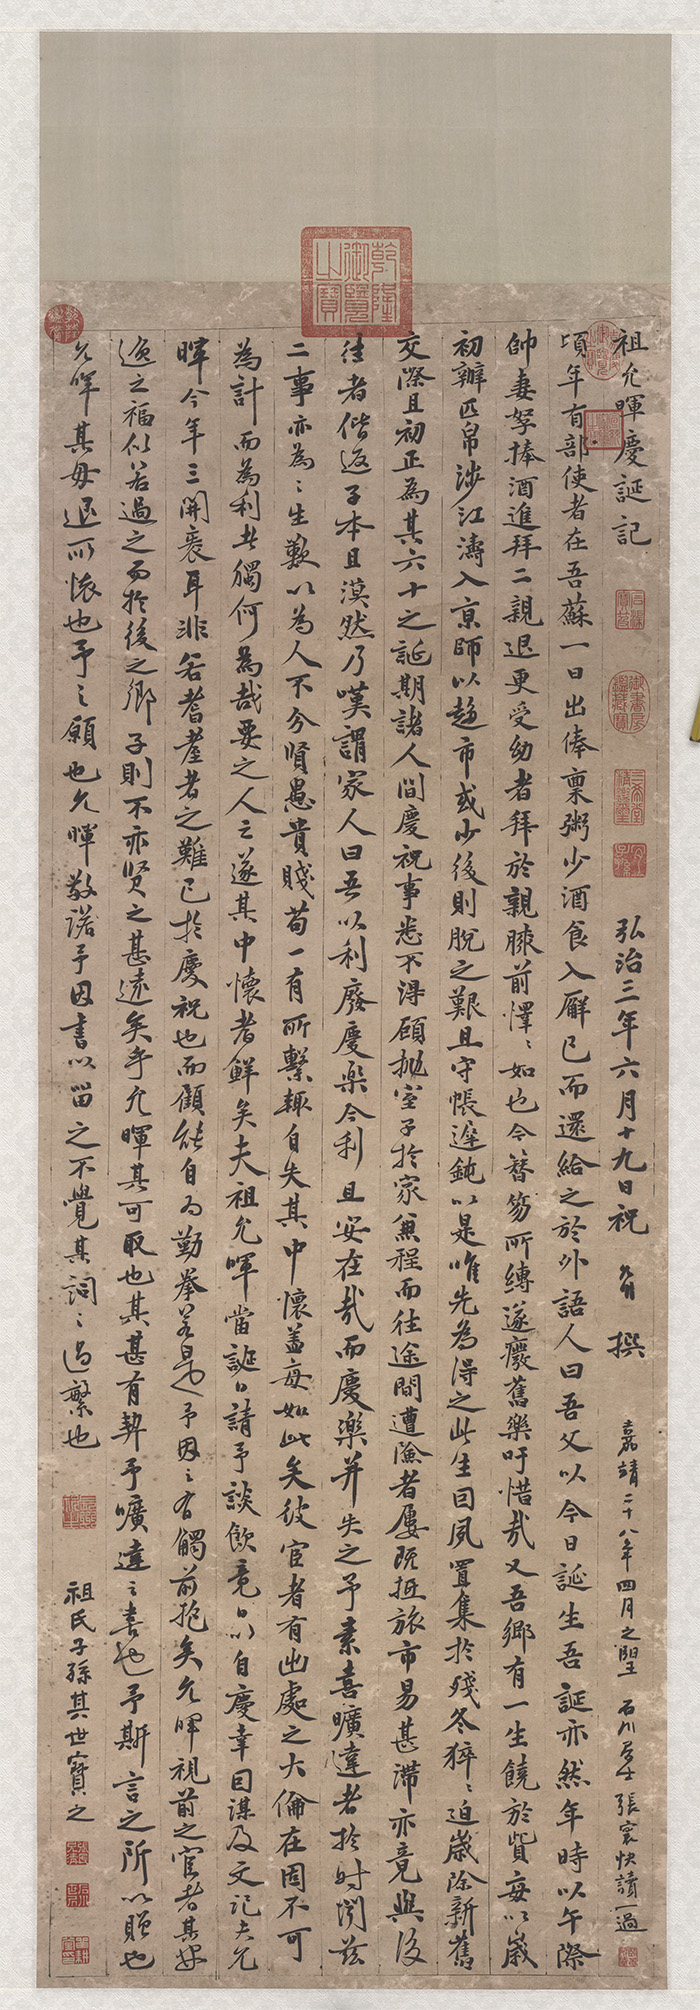 祖允暉慶誕記 弘治三年六月十九日祝 撰
嘉靖二十八年四月之望 石川居士張寰快讀一過
頃年有部使者在吾蘇一日出俸稟粥少酒食入廨已而還給之於外語人曰吾父以今日誕生吾誕亦然年時以午際
帥妻孥捧酒進拜二親退更受幼者拜於親膝前懌〻如也今簪笏所縛遂廢舊樂吁惜哉又吾鄉有一生饒於貲每以歲
初辦匹帛涉江濤入京師以趨市或少後則脫之艱且守帳遲鈍以是唯先為得之此生曰夙置集於殘冬猝〻迫歲除新舊
交際且初正為其六十之誕期諸人間慶祝事悉不得顧拋室子於家兼程而往途間遭險者屢既抵旅市易甚滯亦竟與後
往者偕返子本且漠然乃嘆謂家人曰吾以利廢慶樂今利且安在哉而慶樂并失之予素喜曠達者於時閔茲
二事亦為〻生歎以為人不今賢愚貴賤苟一有所繫輒自失其中懷蓋每如此矣彼宦者有出處之大倫在固不可
為計而為利者獨何為哉要之人之遂其中懷者鮮矣夫祖允暉當誕日請予談飲竟日以自慶幸因謀及文記夫允
暉今年三開袠耳非若耆耋者之難已於慶祝也而顧能自為勤拳若是予因之有觸前抱矣允暉視前之宦者其安
逸之福似若過之而於後之鄉子則不亦賢之甚遠矣乎允暉其可取也其甚有契予曠達之書也予斯言之所以贈也
允暉其毋退所懷也予之願也允暉敬諾予因書以留之不覺其詞〻過繁也
祖氏子孫其世寶之
乾隆御覽之寶